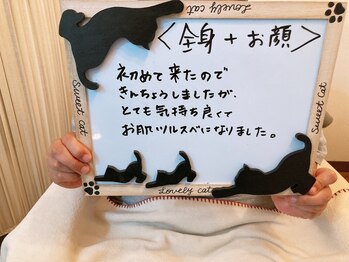 Lovely cat
<全身+お顔>
初めて来たので
きんちょうしましたが、
とても気持ち良くて
お肌ツルスベになりました。
Sweet cat
Sweet cat
Lovely cat